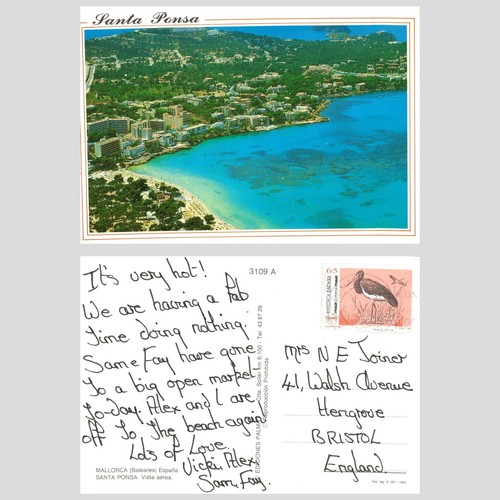 Santa Ponsa
3109 A
It's very hot!
We are having a fab
time doing nothing.
Sam & Fay have gone
to a big open market
to-day. Alex and I are
off to the beach again.
Lots of Love
Vicki, Alex,
Sam, Fay.
MALLORCA (Baleares) España
SANTA PONSA. Vista aérea.
EDICIONES PALMA
Ctra. Soller km 6,100 - Tel. 43 87 29
Reproducción Prohibida
65
Mrs N E Joiner
41, Walsh Avenue
Hengrove
BRISTOL
England.